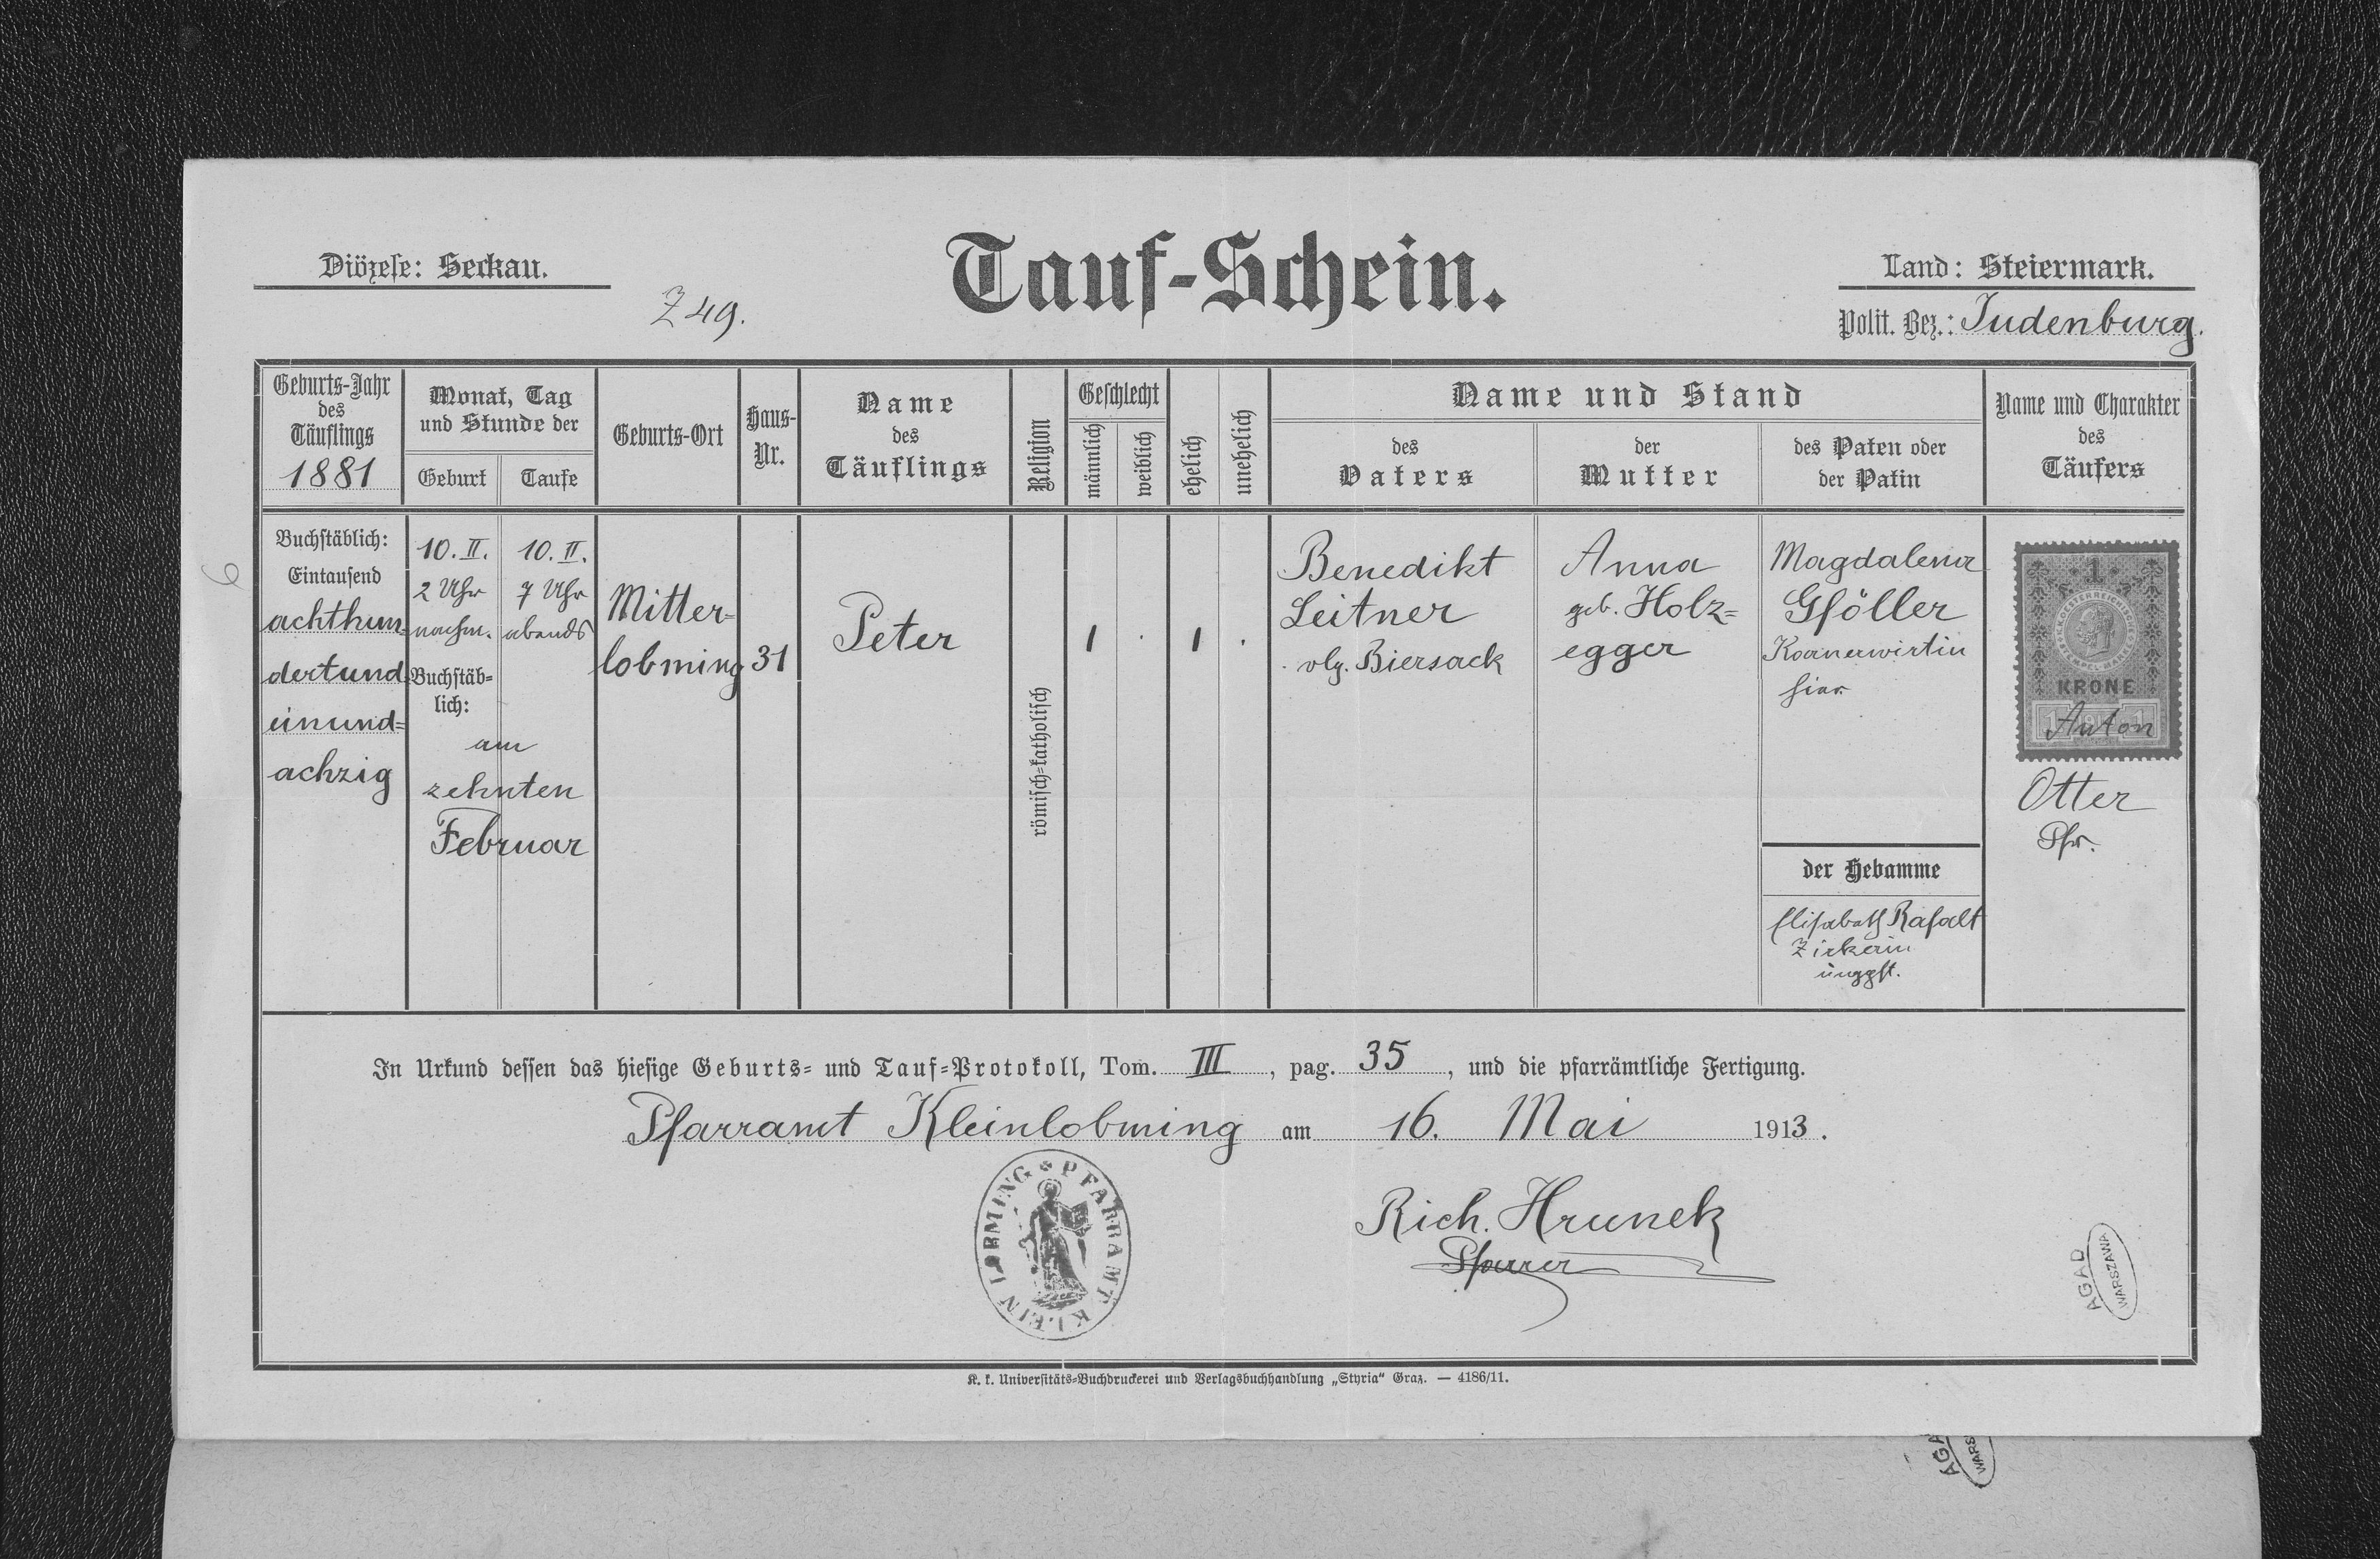 Diözese: Seckau.
Z 49.
Tauf-Schein.
Land: Steiermark.
Polit. Bez.: Judenburg.
Geburts-Jahr
des
Täuflings
1881
Monat, Tag
und Stunde der
Geburt
Taufe
Geburts-Ort
Haus-
Nr.
Name
des
Täuflings
Religion
Geschlecht
männlich
weiblich
ehelich
unehelich
Name und Stand
des
Vaters
der
Mutter
des Paten oder
der Patin
Name und Charakter
des
Täufers
Buchstäblich:
Eintausend
achthun-
dertund
einund-
achzig
10. II.
2 Uhr
nachm.
10. II.
7 Uhr
abends
Buchstäb-
lich:
am
zehnten
Februar
Mitter-
lobming
31
Peter
römisch-katholisch
1
1
Benedikt
Leitner
vlg. Biersack
Anna
geb. Holz-
egger
Magdalena
Gföller
hier
der Hebamme
Elisabeth Rafalt
ungpft.
1
KRONE
Anton
Otter
Pfr.
In Urkund dessen das hiesige Geburts- und Tauf-Protokoll, Tom. III, pag. 35, und die pfarrämtliche Fertigung.
Pfarramt Kleinlobming am 16. Mai 1913.
PFARRAMT KLEIN LOBMING
Rich. Hrunek
Pfarrer
AGAD
WARSZAWA
K. k. Universitäts-Buchdruckerei und Verlagsbuchhandlung „Styria“ Graz. — 4186/11.
6
AGA
WARS